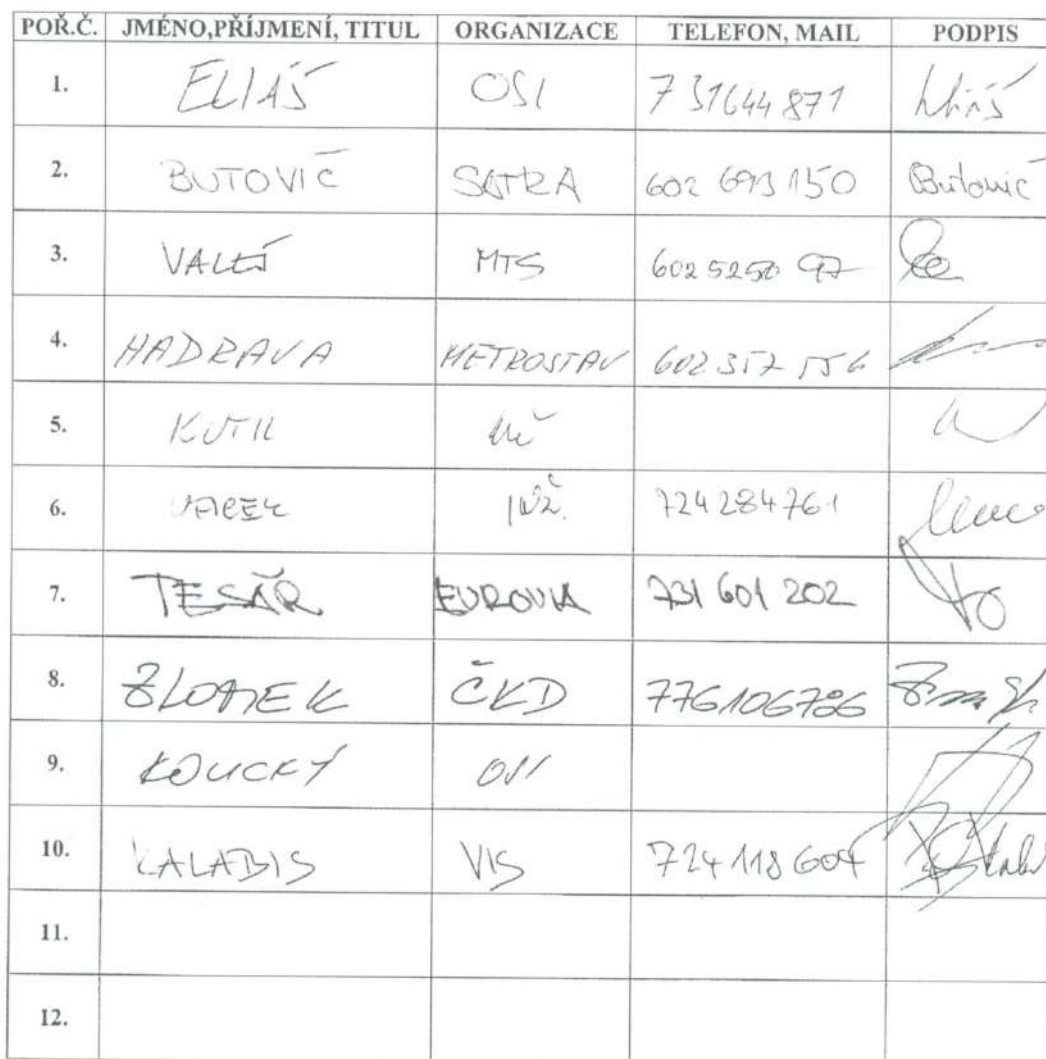 POŘ.Č. JMÉNO,PŘÍJMENÍ, TITUL ORGANIZACE TELEFON, MAIL PODPIS
1. ELIÁŠ OSI 731644871
2. BUTOVIČ SATRA 602 693 150 Butovič
3. VALEŠ MTS 602525097
4. HADRAVA METROSTAV 602 357 556
5. KUTIL
6. INŽ. 724284761
7. TESAŘ EUROVIA 731 601 202
8. ZLOMEK ČKD 776106786
9. KOUCKÝ OSI
10. KALABIS VIS 724 118 604
11.
12.